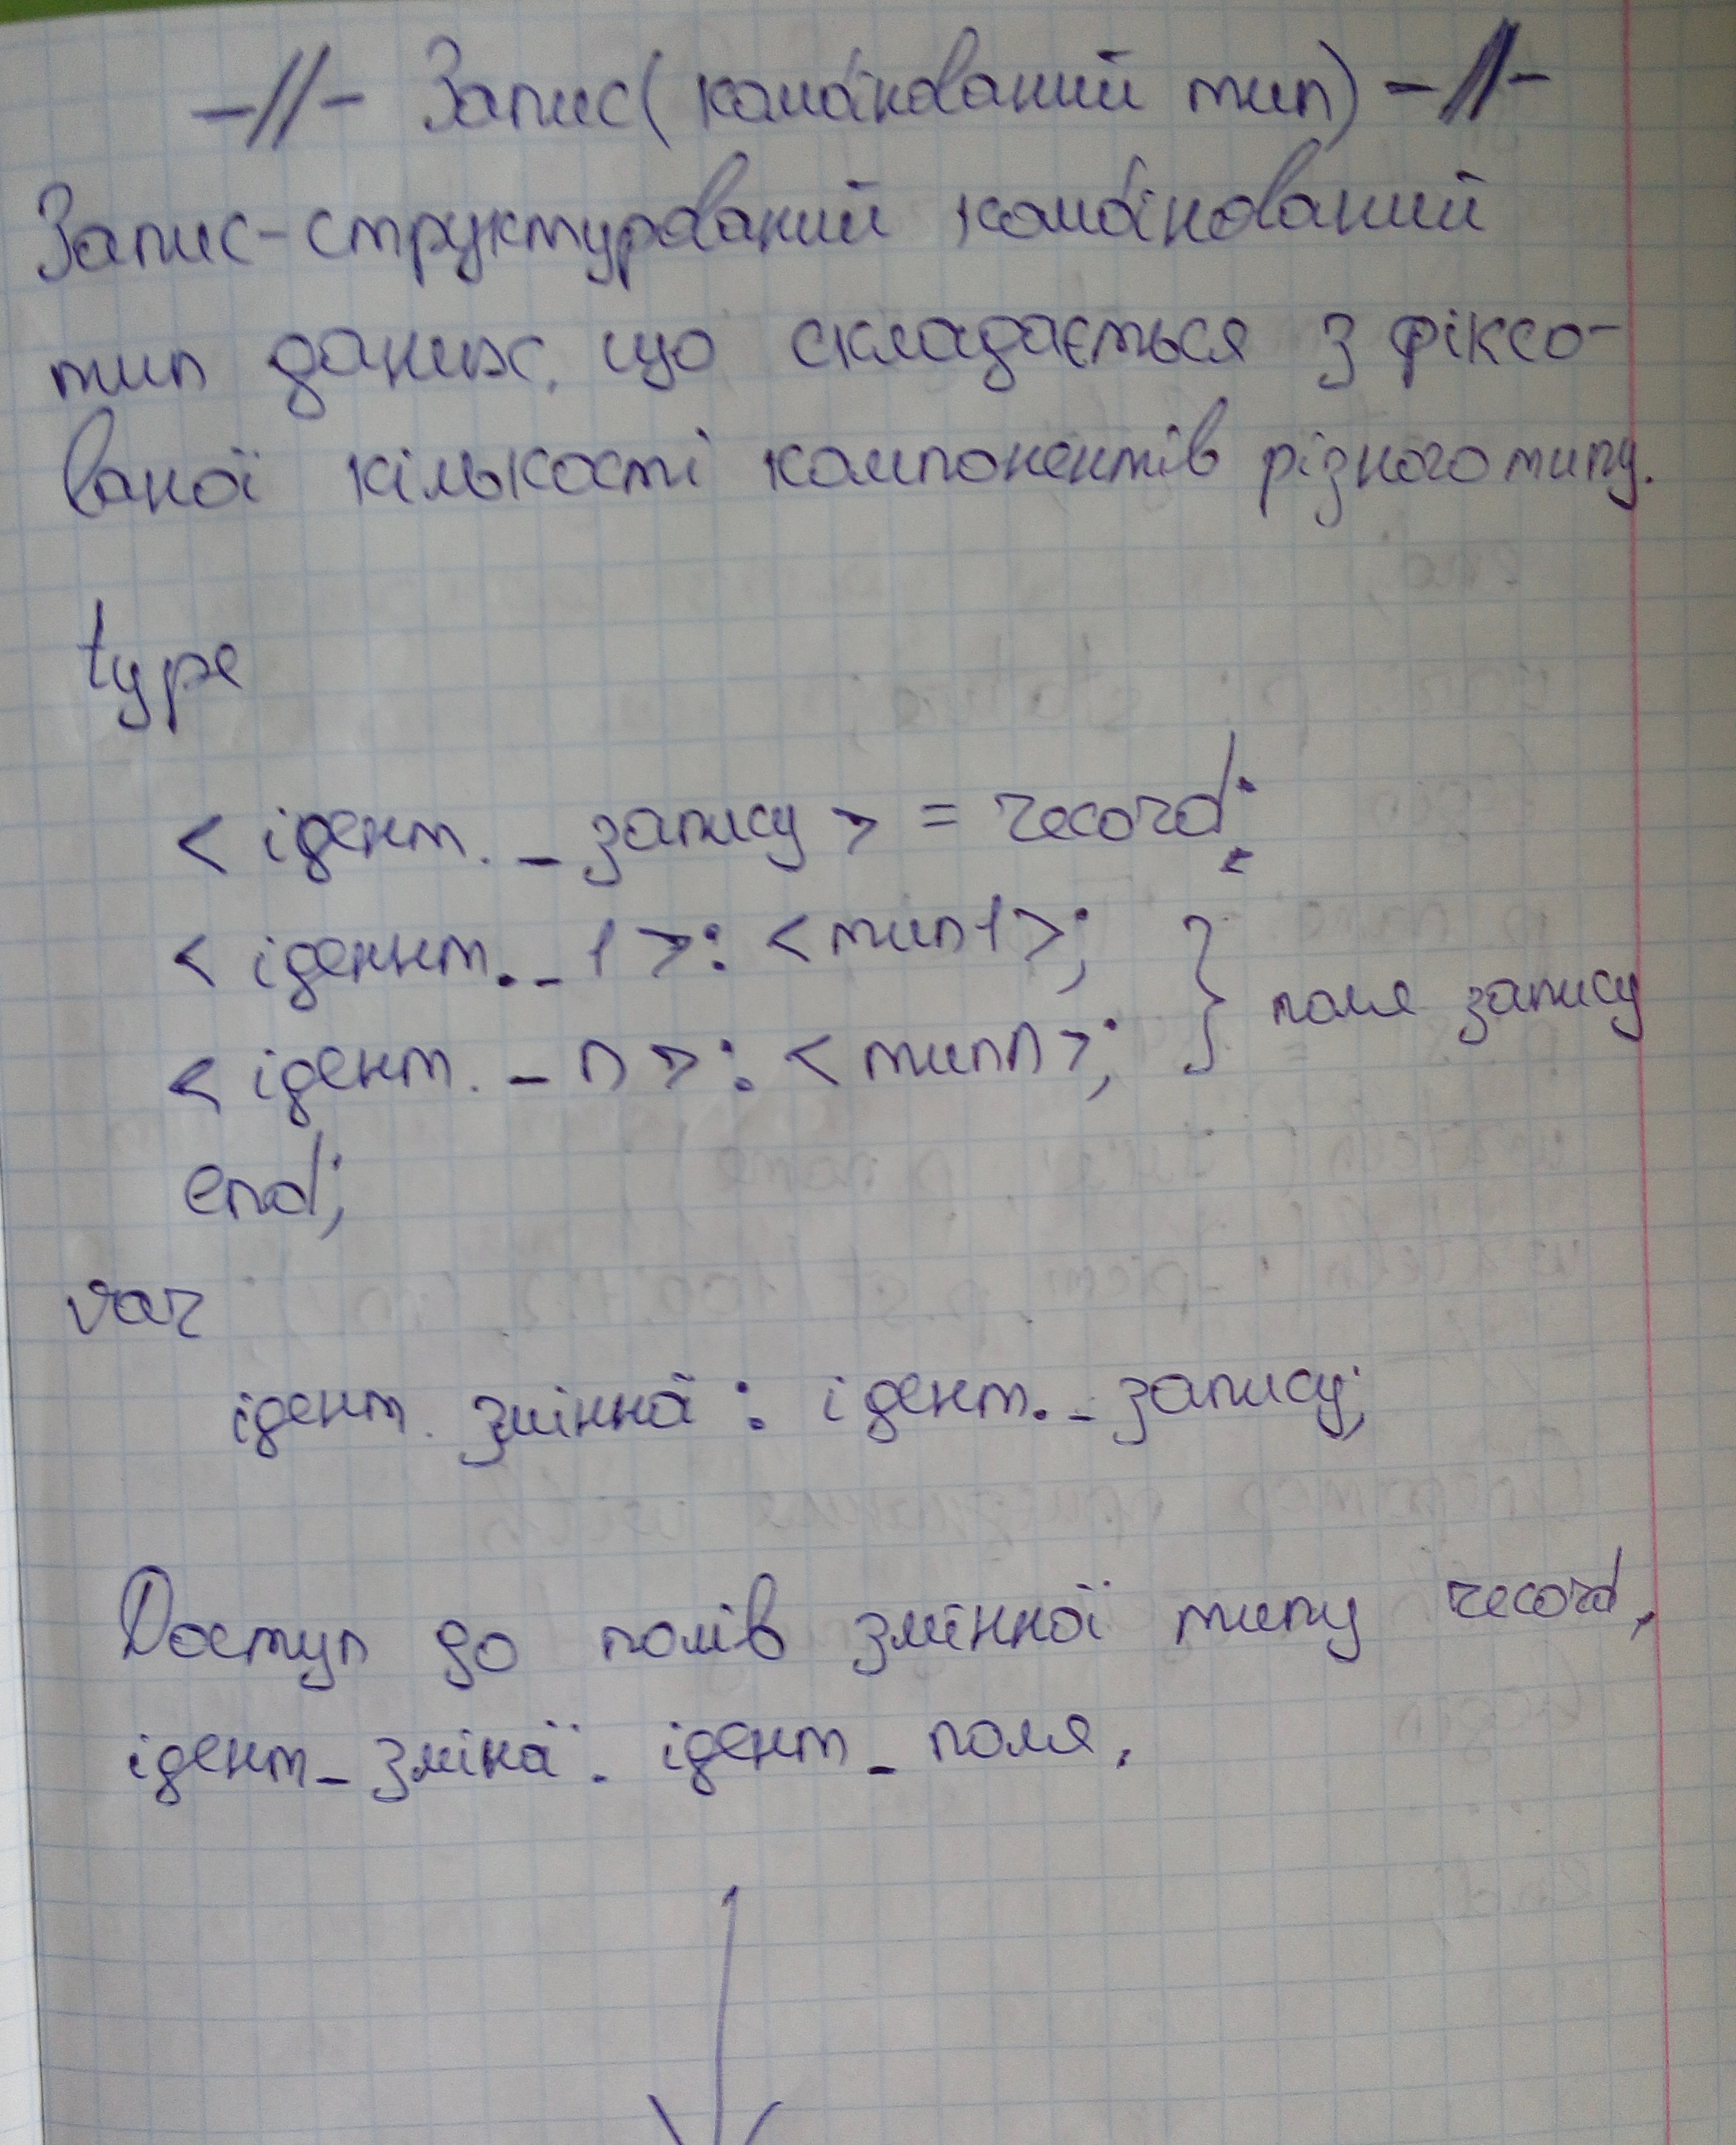 -//- Запис( комбінований тип) -//-
Запис-структурований комбінований
тип даних, що складається з фіксо-
ваної кількості компонентів різного типу.
type
< ідент. _ запису > = record:
< ідент. _ 1 >: < тип1 >;
< ідент. _ n >: < типn >; } поля запису
end;
var
ідент. змінна : ідент. _ запису;
Доступ до полів змінної типу record,
ідент_ зміна . ідент _ поля.